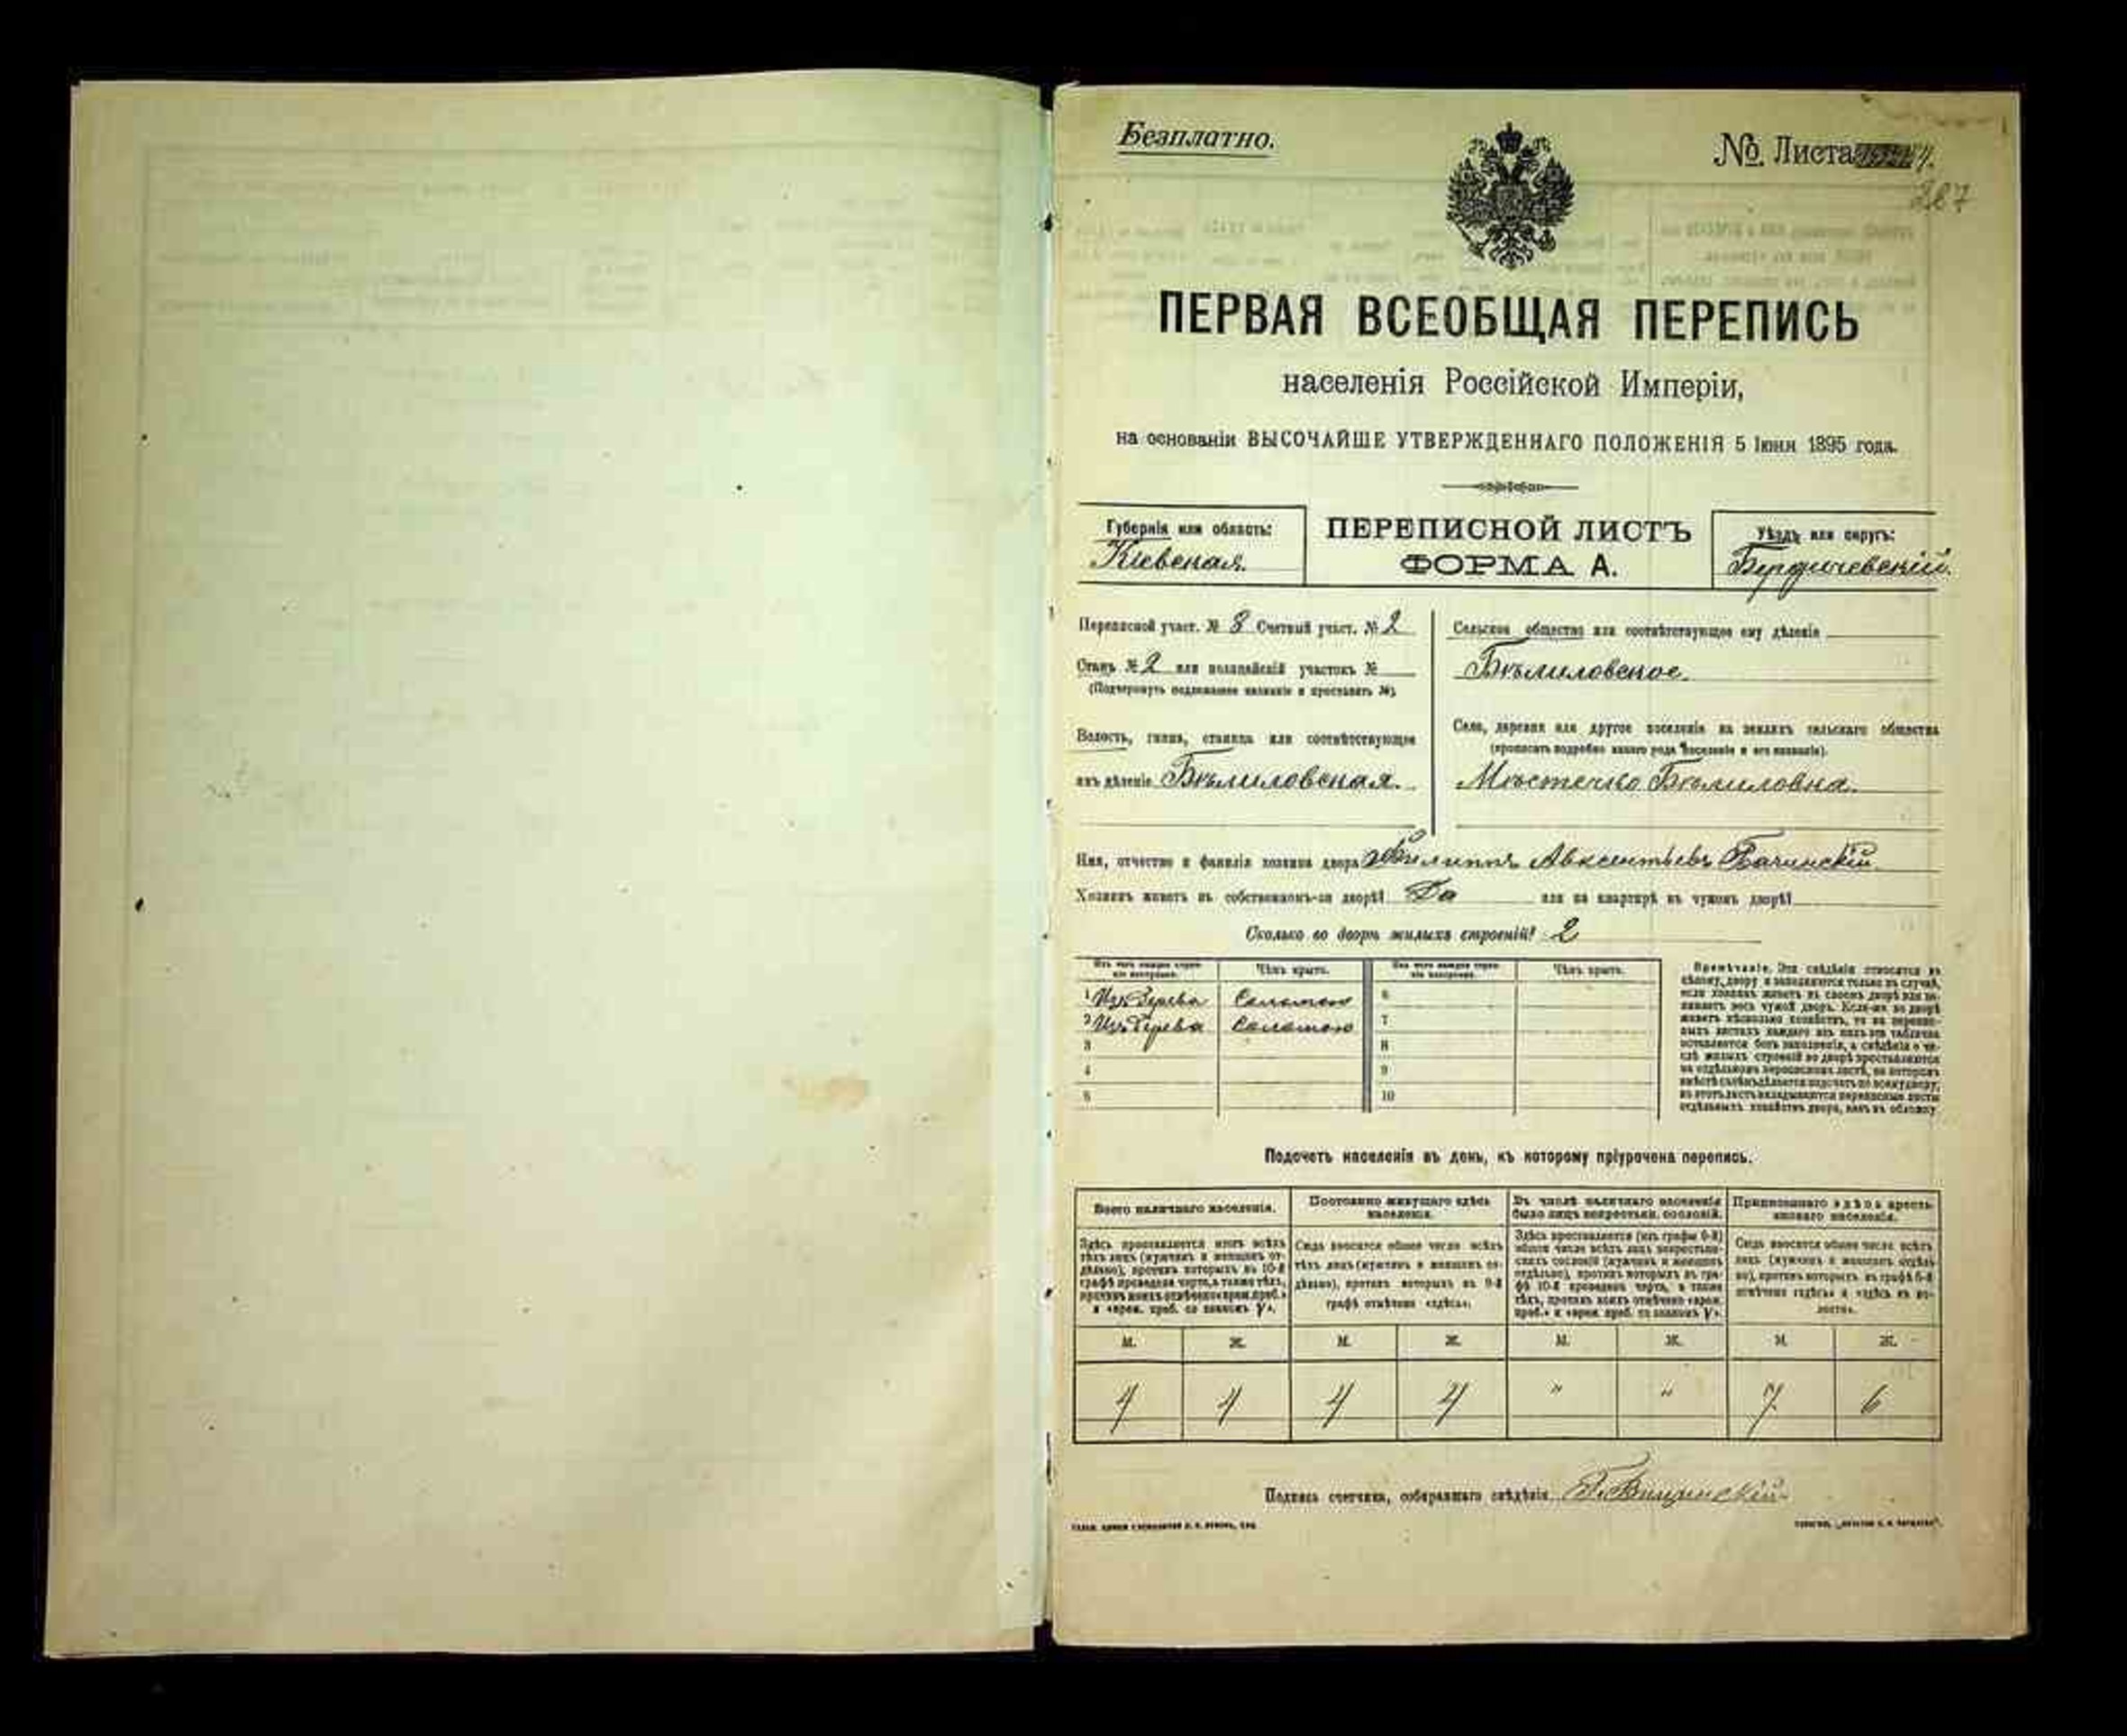 Безплатно.
№ Листа
287
ПЕРВАЯ ВСЕОБЩАЯ ПЕРЕПИСЬ
населенія Россійской Имперіи,
на основаніи ВЫСОЧАЙШЕ УТВЕРЖДЕННАГО ПОЛОЖЕНІЯ 5 Іюня 1895 года.
Губернія или область:
Кіевская.
ПЕРЕПИСНОЙ ЛИСТЪ
ФОРМА А.
Уѣздъ или округъ:
Бердичевскій.
Переписной участ. № 3 Счетный участ. № 2
Станъ № 2 или полицейскій участокъ №
(Подчеркнуть подлежащее названіе и проставить №).
Волость, гмина, станица или соотвѣтствующее
имъ дѣленіе Бѣлиловская.
Сельское общество или соотвѣтствующее ему дѣленіе
Бѣлиловское.
Село, деревня или другое поселеніе на земляхъ сельскаго общества
(прописать подробно какого рода поселеніе и его названіе).
Мѣстечко Бѣлиловка.
Имя, отчество и фамилія хозяина двора Филиппъ Авксентьевъ Бачинскій
Хозяинъ живетъ въ собственномъ-ли дворѣ? Да или на квартирѣ въ чужомъ дворѣ?
Сколько во дворѣ жилыхъ строеній? 2
Изъ чего каждое строеніе построено. Чѣмъ крыто. Изъ чего каждое строеніе построено. Чѣмъ крыто.
1 Изъ дерева Соломою 6
2 Изъ дерева Соломою 7
3 8
4 9
5 10
Примѣчаніе. Эти свѣдѣнія относятся къ
цѣлому двору и заполняются только въ случаѣ,
если хозяинъ живетъ въ своемъ дворѣ или за-
нимаетъ весь чужой дворъ. Если-же во дворѣ
живетъ нѣсколько хозяйствъ, то на перепис-
ныхъ листахъ каждаго изъ нихъ эта табличка
оставляется безъ заполненія, а свѣдѣнія о чи-
слѣ жилыхъ строеній во дворѣ проставляются
на отдѣльномъ переписномъ листѣ, на которомъ
вмѣстѣ съ тѣмъ дѣлается подсчетъ по всему двору;
въ этотъ листъ вкладываются переписные листы
отдѣльныхъ хозяйствъ двора, какъ въ обложку.
Подсчетъ населенія въ день, къ которому пріурочена перепись.
Всего наличнаго населенія.
Здѣсь проставляется итогъ всѣхъ
тѣхъ лицъ (мужчинъ и женщинъ от-
дѣльно), противъ которыхъ въ 10-й
графѣ проведена черта, а также тѣхъ,
противъ коихъ отмѣчено «врем. преб.»
и «врем. преб. со знакомъ V».
Постоянно живущаго здѣсь
населенія.
Сюда вносится общее число всѣхъ
тѣхъ лицъ (мужчинъ и женщинъ от-
дѣльно), противъ которыхъ въ 9-й
графѣ отмѣчено «здѣсь».
Въ числѣ наличнаго населенія
было лицъ некрестьян. сословій.
Здѣсь проставляется (изъ графы 6-й)
общее число всѣхъ лицъ некрестьян-
скихъ сословій (мужчинъ и женщинъ
отдѣльно), противъ которыхъ въ гра-
фѣ 10-й проведена черта, а также
тѣхъ, противъ коихъ отмѣчено «врем.
преб.» и «врем. преб. со знакомъ V».
Приписаннаго здѣсь кресть-
янскаго населенія.
Сюда вносится общее число всѣхъ
лицъ (мужчинъ и женщинъ отдѣль-
но), противъ которыхъ въ графѣ 8-й
отмѣчено «здѣсь» и «здѣсь въ во-
лости».
М. Ж. М. Ж. М. Ж. М. Ж.
4 4 4 4 " " 7 6
Подпись счетчика, собиравшаго свѣдѣнія